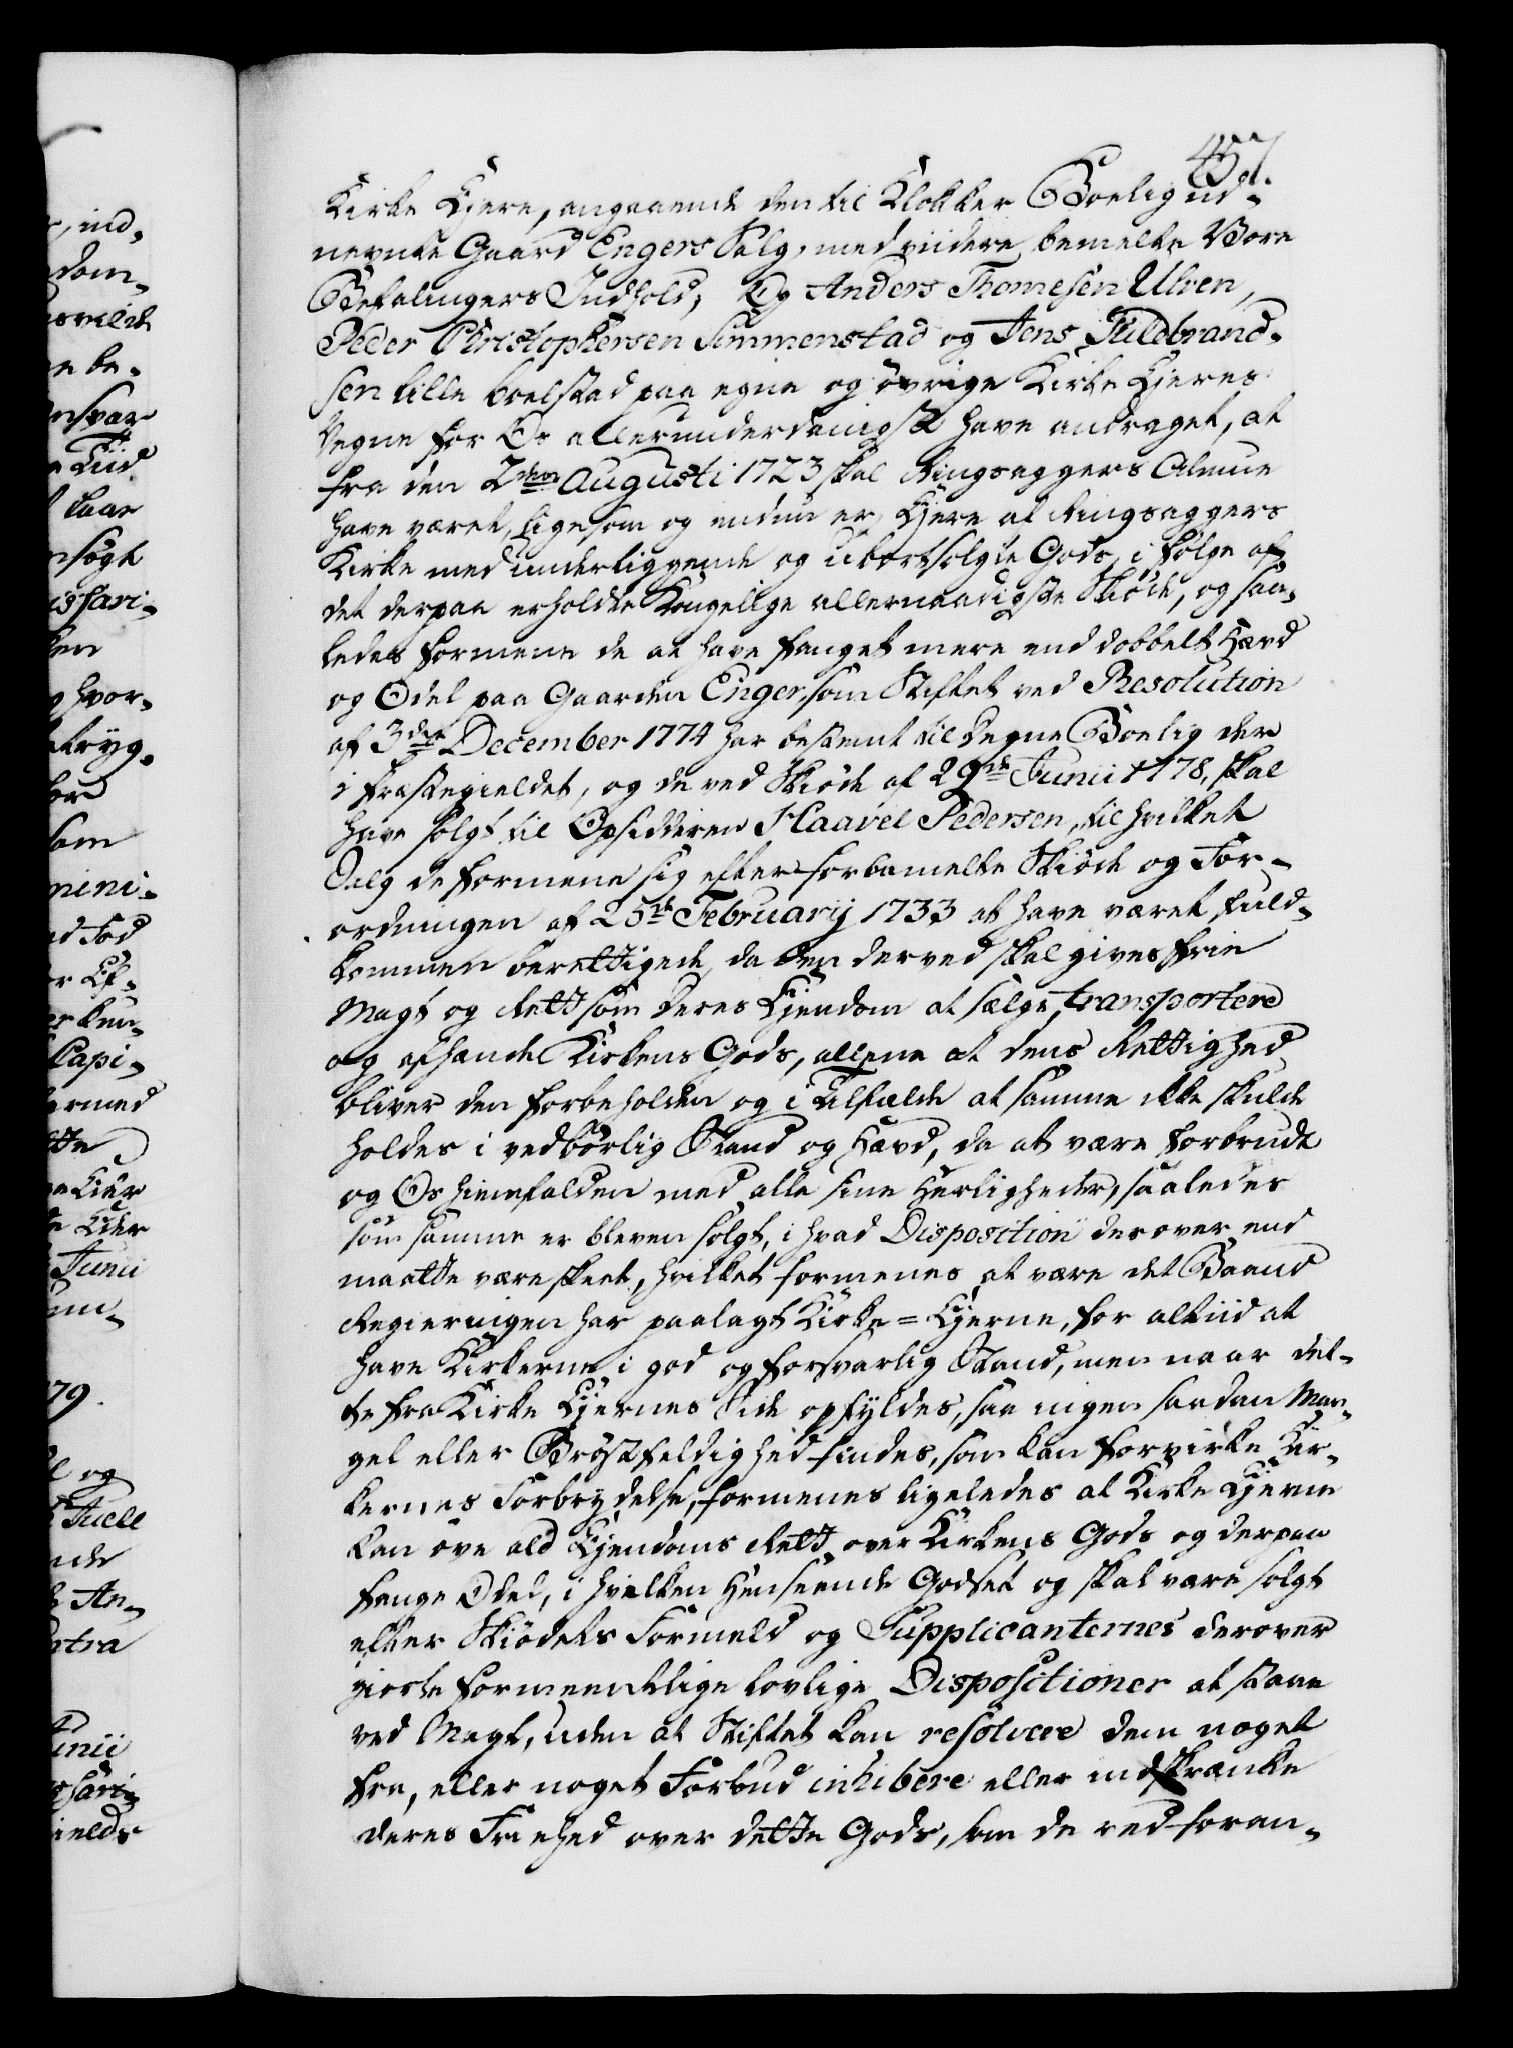 457.
Kirke Ejere, angaaende den til Klokker Boelig ud-
nevnte Gaard Engers Salg, med viidere bemelte Vore
Befalingers Indhold; Og Anders Thomesen Ulven,
Peder Christophersen Simmenstad og Jens Hildbrand-
sen lille boelstad paa egne og övrige Kirke Ejeres
Vegne for Os allerunderdanigst have andraget, at
fra den 2den Augusti 1723 skal Ringsaggers Almue
have været, ligesom og endnu er, Ejere af Ringsaggers
Kirke med underliggende og ubortsolgte Gods, i fölge af
det derpaa erholdte Kongelige allernaadigste Skiöde, og saa-
ledes formene de at have fanget mere end dobbelt Hævd
og Odel paa Gaarden Enger, som Stiftet ved Resolution
af 3die December 1774 har bestemt til Degne Boelig der
i Præstegieldet, og de ved Skiöde af 29de Junii 1778, skal
have solgt til Opsidderen Haavel Pedersen, til hvilket
Salg de formene sig efter forbemelte Skiöde og For-
ordningen af 25de Februarij 1733 at have været fuld-
kommen berettigede, da den derved skal gives frie
Magt og Rett som deres Ejendom at sælge, transportere
og afhænde Kirkens Gods, allene at dens Rettighed
bliver den forbeholden og i Tilfælde at samme ikke skulde
holdes i vedbörlig Stand og Hævd, da at være forbrudt
og Os hiemfalden med alle sine Herligheder, saaledes
som samme er bleven solgt, i hvad Disposition derover end
maatte være skeet, hvilket formenes at være det Baand
Regieringen har paalagt Kirke=Ejerne, for altiid at
have Kirkerne i god og forsvarlig Stand, men naar det-
te fra Kirke Ejernes Side opfyldes, saa ingen saadan Man-
gel eller Bröstfeldighed findes, som kan forvirke Kir-
kernes Forbrydelse, formenes ligeledes at Kirke Ejerne
kan öve ald Ejendoms Rett over Kirkens Gods og derpaa
fange Odel, i hvilken Henseende Godset og skal være solgt
efter Skiödets Formeld og Supplicanternes derover
giorte formeentlige lovlige Dispositioner at staae
ved Magt, uden at Stiftet kan resolvere dem noget
fra, eller noget Forbud inhibere eller indskrænke
deres Friehed over dette Gods, som de ved foran-